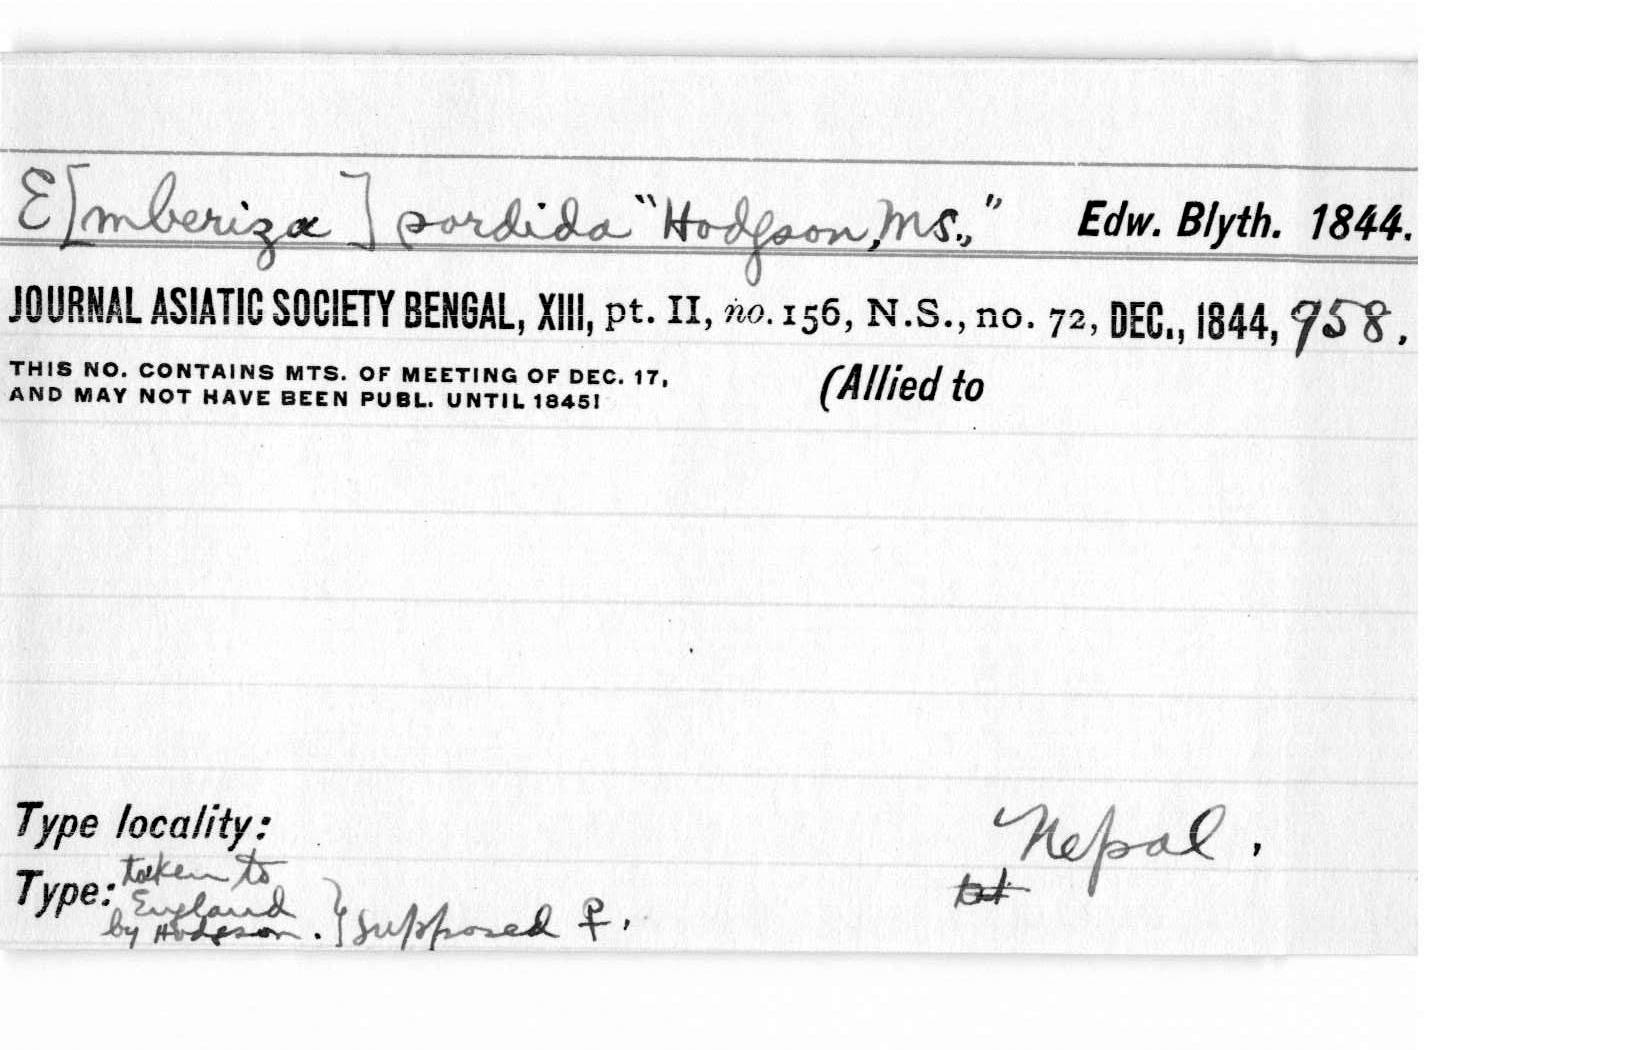 E[mberiza] sordida "Hodgson, Ms.," Edw. Blyth. 1844.
JOURNAL ASIATIC SOCIETY BENGAL, XIII, pt. II, no. 156, N.S., no. 72, DEC., 1844, 958.
THIS NO. CONTAINS MTS. OF MEETING OF DEC. 17,
AND MAY NOT HAVE BEEN PUBL. UNTIL 1845!
(Allied to
Type locality: Nepal.
Type: taken to
England
by Hodgson. } supposed ♀.